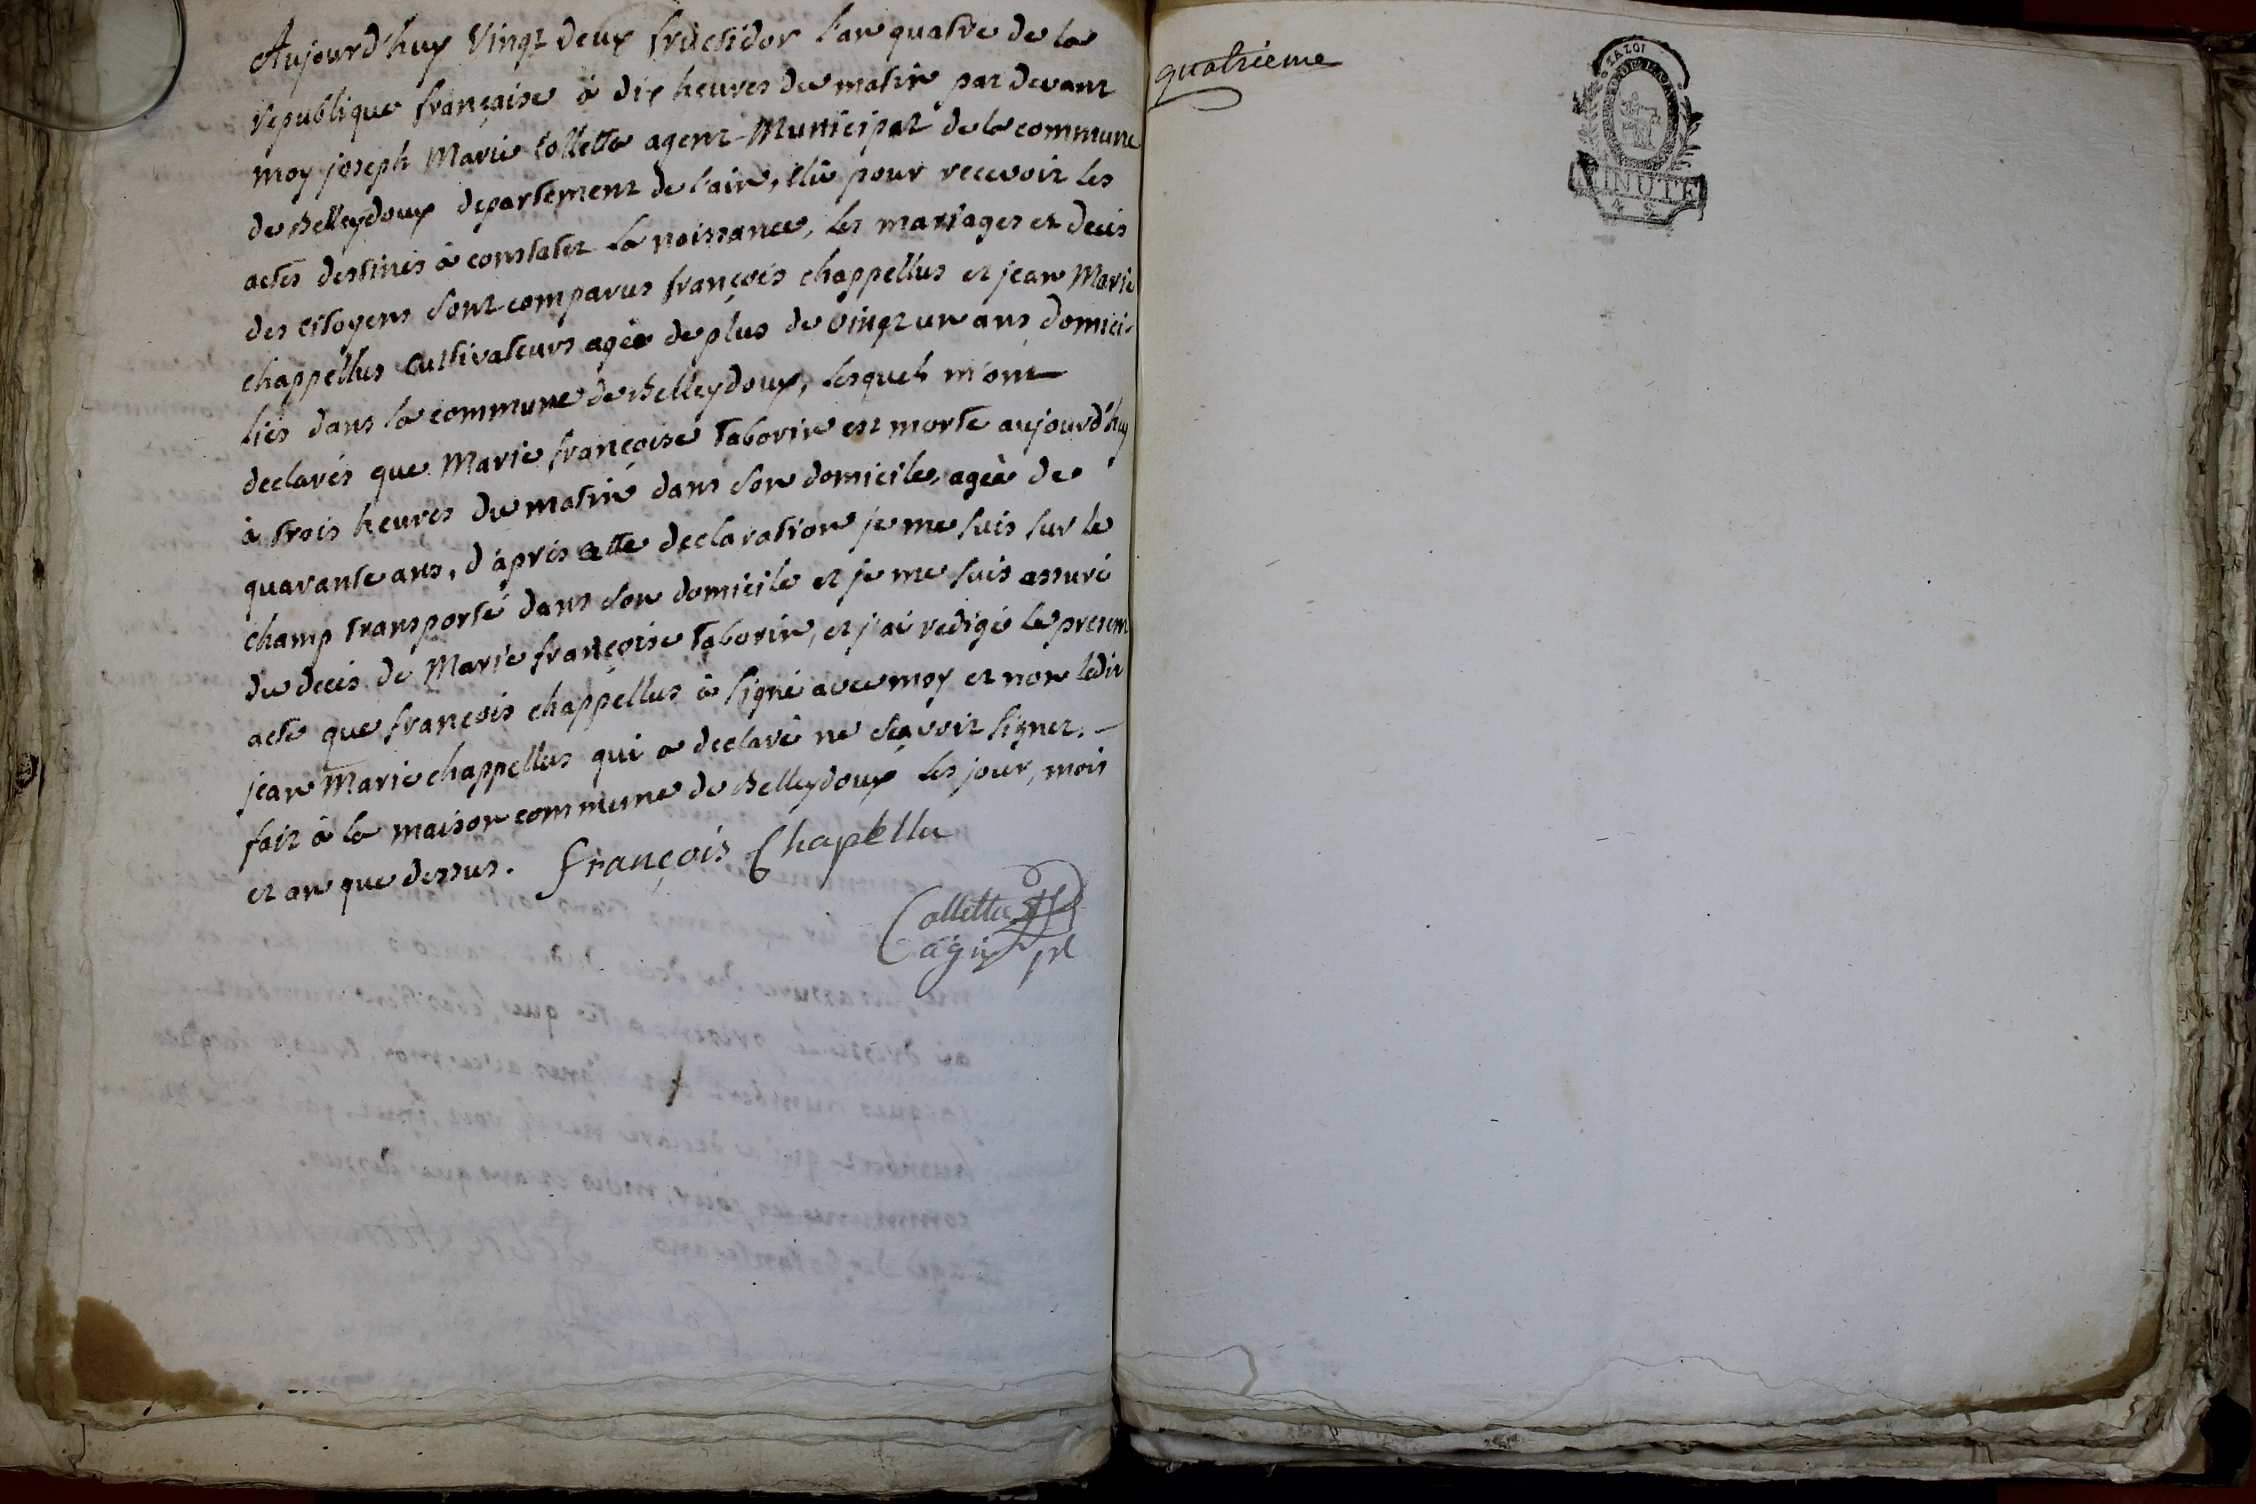 Aujourd'huy vingt deux fructidor l'an quatre de la
republique française à dix heures du matin par devant
moy joseph Marie Collette agent Municipal de la commune
de Belleydoux departement de l'ain, élu pour recevoir les
actes destinés à constater la naissance, les mariages et decés
des citoyens sont comparus françois chappellus et jean Marie
chappellus cultivateurs agée de plus de vingt un ans domici-
liés dans la commune de Belleydoux, lesquels m'ont
declarés que Marie françoise Taborin est morte aujourd'huy
à trois heures du matin dans son domicile, agée de
quarante ans, d'après cette declaration je me suis sur le
champ transporté dans son domicile et je me suis assuré
du decés de Marie françoise Taborin, et j'ai redigé le present
acte que françois chappellus à signé avec moy et non ledit
jean Marie chappellus qui a declaré ne sçavoir signer. —
fait à la maison commune de Belleydoux les jour, mois
et an que dessus. François Chapellu
Collette
agent pl
quatrieme
MINUTE